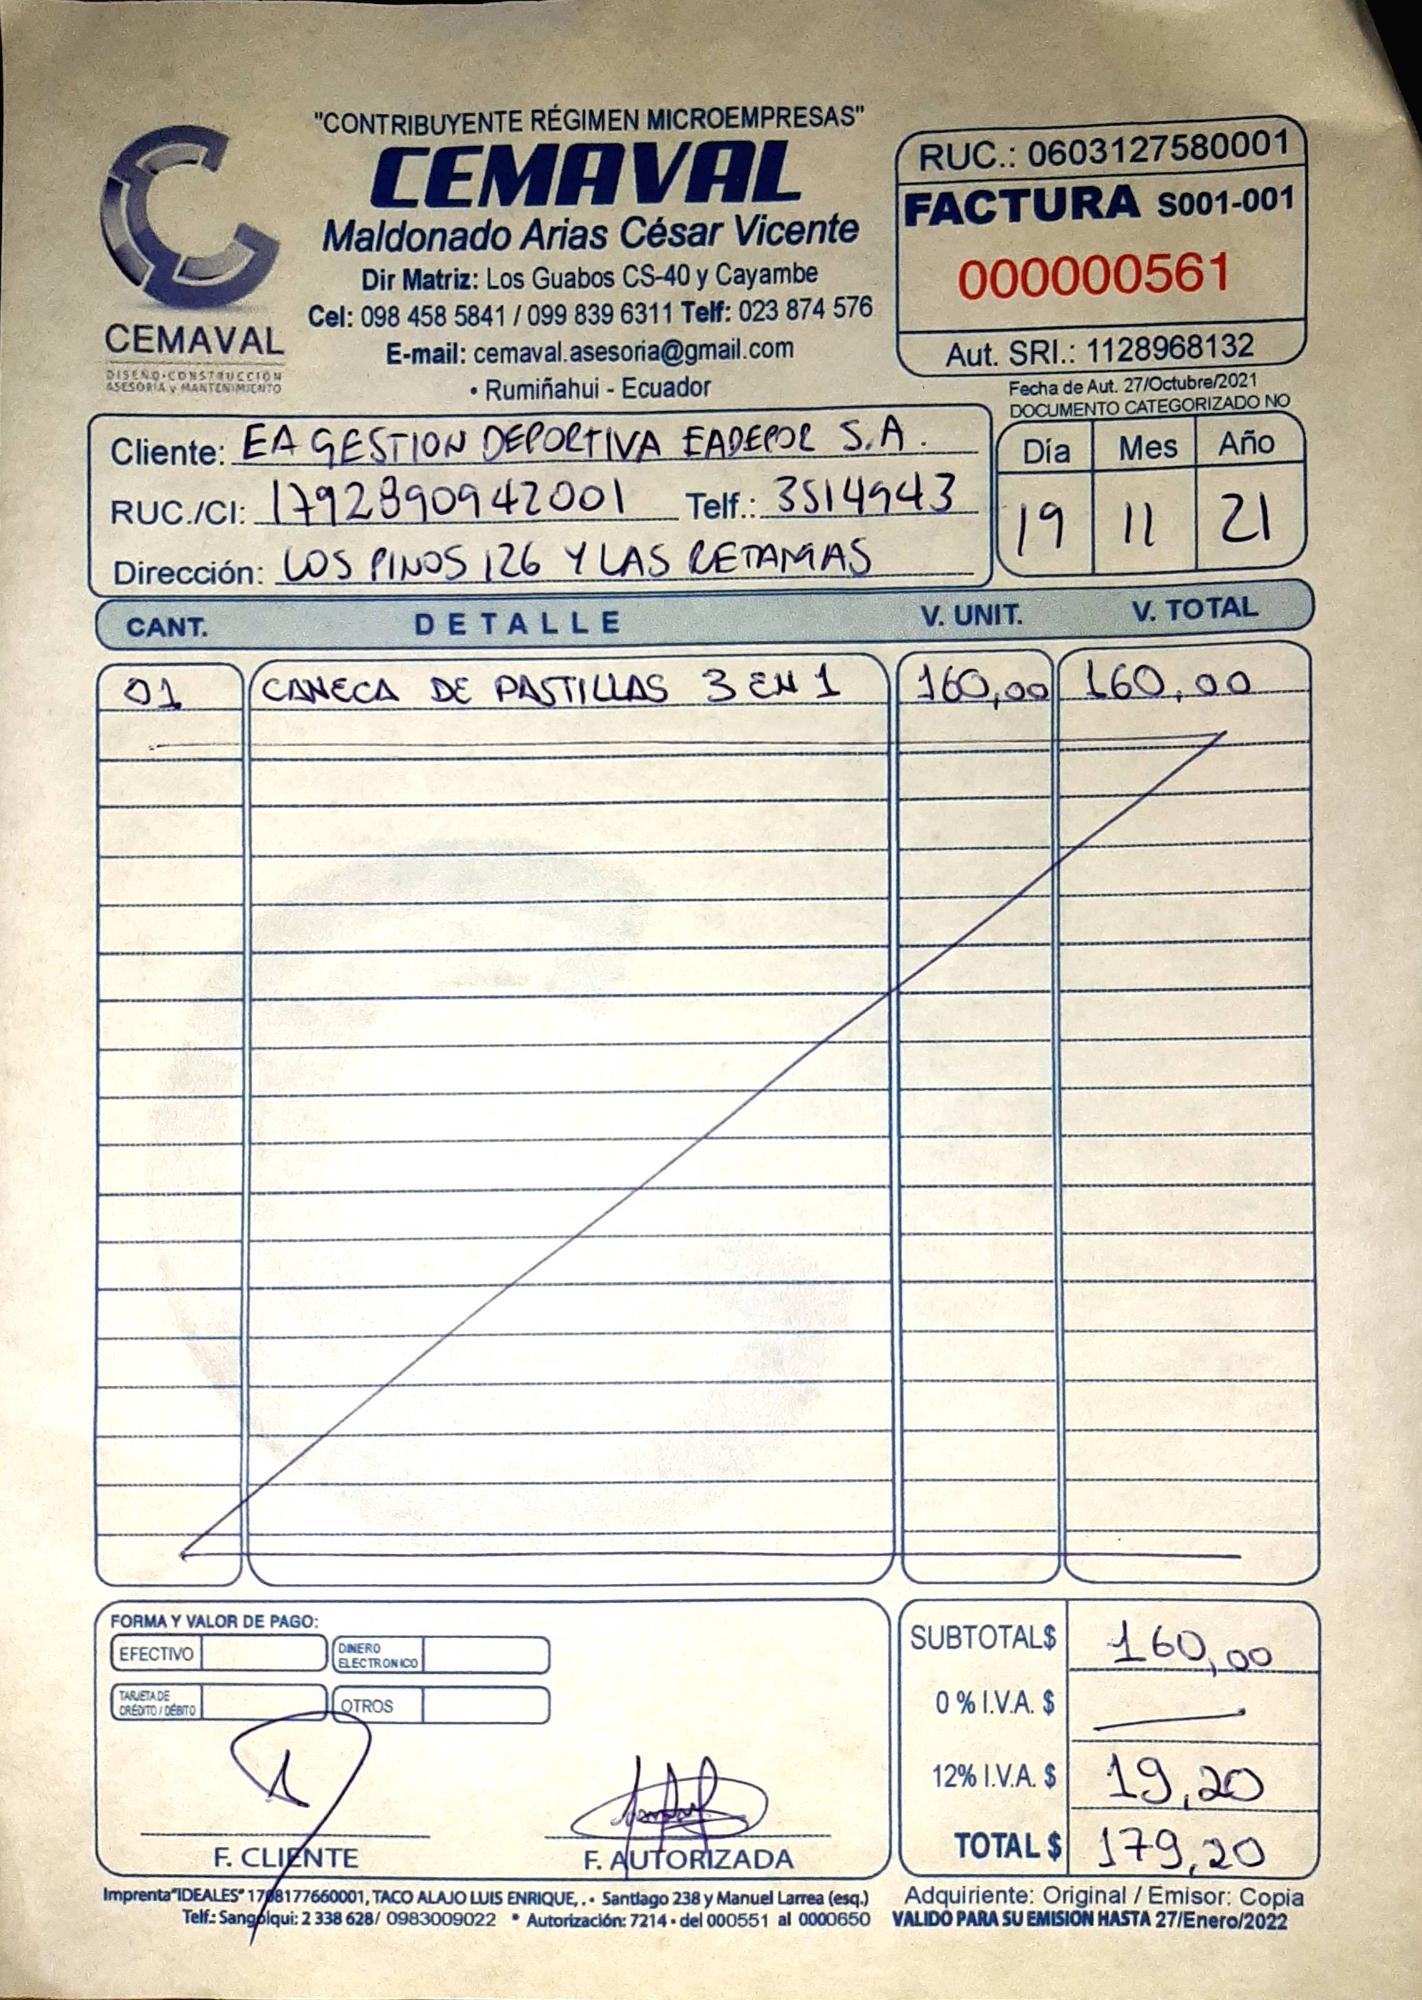 "CONTRIBUYENTE RÉGIMEN MICROEMPRESAS"
CEMAVAL
Maldonado Arias César Vicente
Dir Matriz: Los Guabos CS-40 y Cayambe
Cel: 098 458 5841 / 099 839 6311 Telf: 023 874 576
E-mail: cemaval.asesoria@gmail.com
• Rumiñahui - Ecuador
CEMAVAL
DISEÑO-CONSTRUCCIÓN
ASESORÍA y MANTENIMIENTO
RUC.: 0603127580001
FACTURA S001-001
000000561
Aut. SRI.: 1128968132
Fecha de Aut. 27/Octubre/2021
DOCUMENTO CATEGORIZADO NO
Cliente: EA GESTION DEPORTIVA EADEPOR S.A.
RUC./CI: 1792890942001 Telf.: 3514943
Dirección: LOS PINOS 126 Y LAS RETAMAS
Día Mes Año
19 11 21
CANT. DETALLE V. UNIT. V. TOTAL
01 CANECA DE PASTILLAS 3 EN 1 160,00 160,00
FORMA Y VALOR DE PAGO:
EFECTIVO DINERO ELECTRONICO
TARJETA DE CRÉDITO / DÉBITO OTROS
F. CLIENTE F. AUTORIZADA
SUBTOTAL$ 160,00
0 % I.V.A. $
12% I.V.A. $ 19,20
TOTAL $ 179,20
Imprenta"IDEALES" 1708177660001, TACO ALAJO LUIS ENRIQUE, . • Santiago 238 y Manuel Larrea (esq.)
Telf.: Sangolqui: 2 338 628/ 0983009022 * Autorización: 7214 • del 000551 al 0000650
Adquiriente: Original / Emisor: Copia
VALIDO PARA SU EMISION HASTA 27/Enero/2022